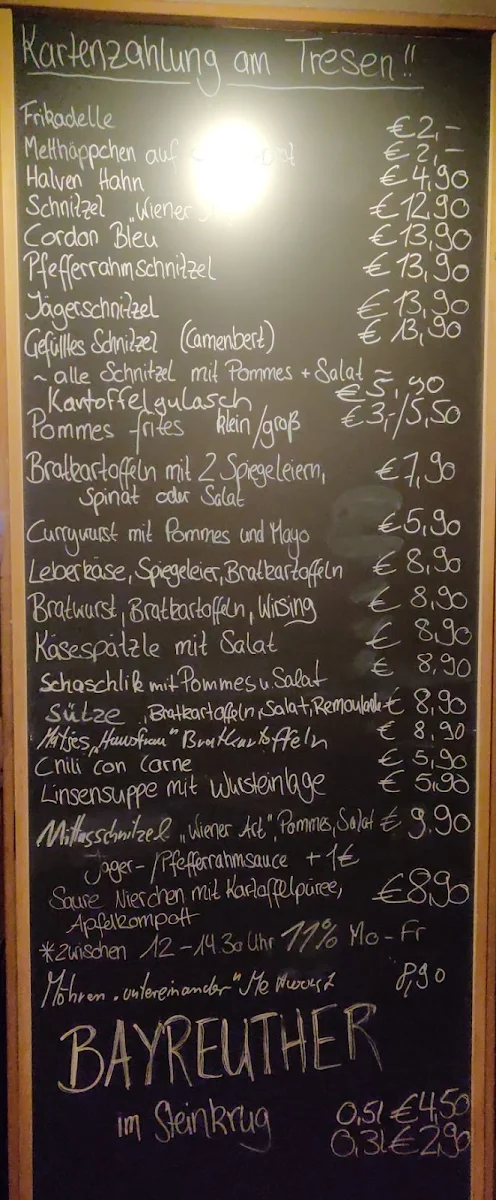 Kartenzahlung am Tresen!!
Frikadelle €2,-
Metthäppchen auf €2,-
Halven Hahn €4,90
Schnitzel "Wiener €12,90
Cordon Bleu €13,90
Pfefferrahmschnitzel €13,90
Jägerschnitzel €13,90
Gefülltes Schnitzel (Camenbert) €13,90
~ alle Schnitzel mit Pommes + Salat ~
Kartoffelgulasch €5,90
Pommes frites klein/groß €3,-/5,50
Bratkartoffeln mit 2 Spiegeleiern, €7,90
Spinat oder Salat
Currywurst mit Pommes und Mayo €5,90
Leberkäse, Spiegeleier, Bratkartoffeln € 8,90
Bratwurst, Bratkartoffeln, Wirsing € 8,90
Käsespätzle mit Salat € 8,90
Schaschlik mit Pommes u. Salat € 8,90
Sülze, Bratkartoffeln, Salat, Remoulade € 8,90
Matjes "Hausfrau" Bratkartoffeln € 8,90
Chili con Carne € 5,90
Linsensuppe mit Wursteinlage € 5,90
Mittagsschnitzel "Wiener Art", Pommes, Salat € 9.90
Jäger-/Pfefferrahmsauce +1€
Saure Nierchen mit Kartoffelpüree, €8,90
Apfelkompott
*Zwischen 12-14.30 Uhr 11% Mo-Fr
Möhren "untereinander" Mettwurst 8,90
BAYREUTHER
im Steinkrug 0,5l €4,50
0,3l €2,90